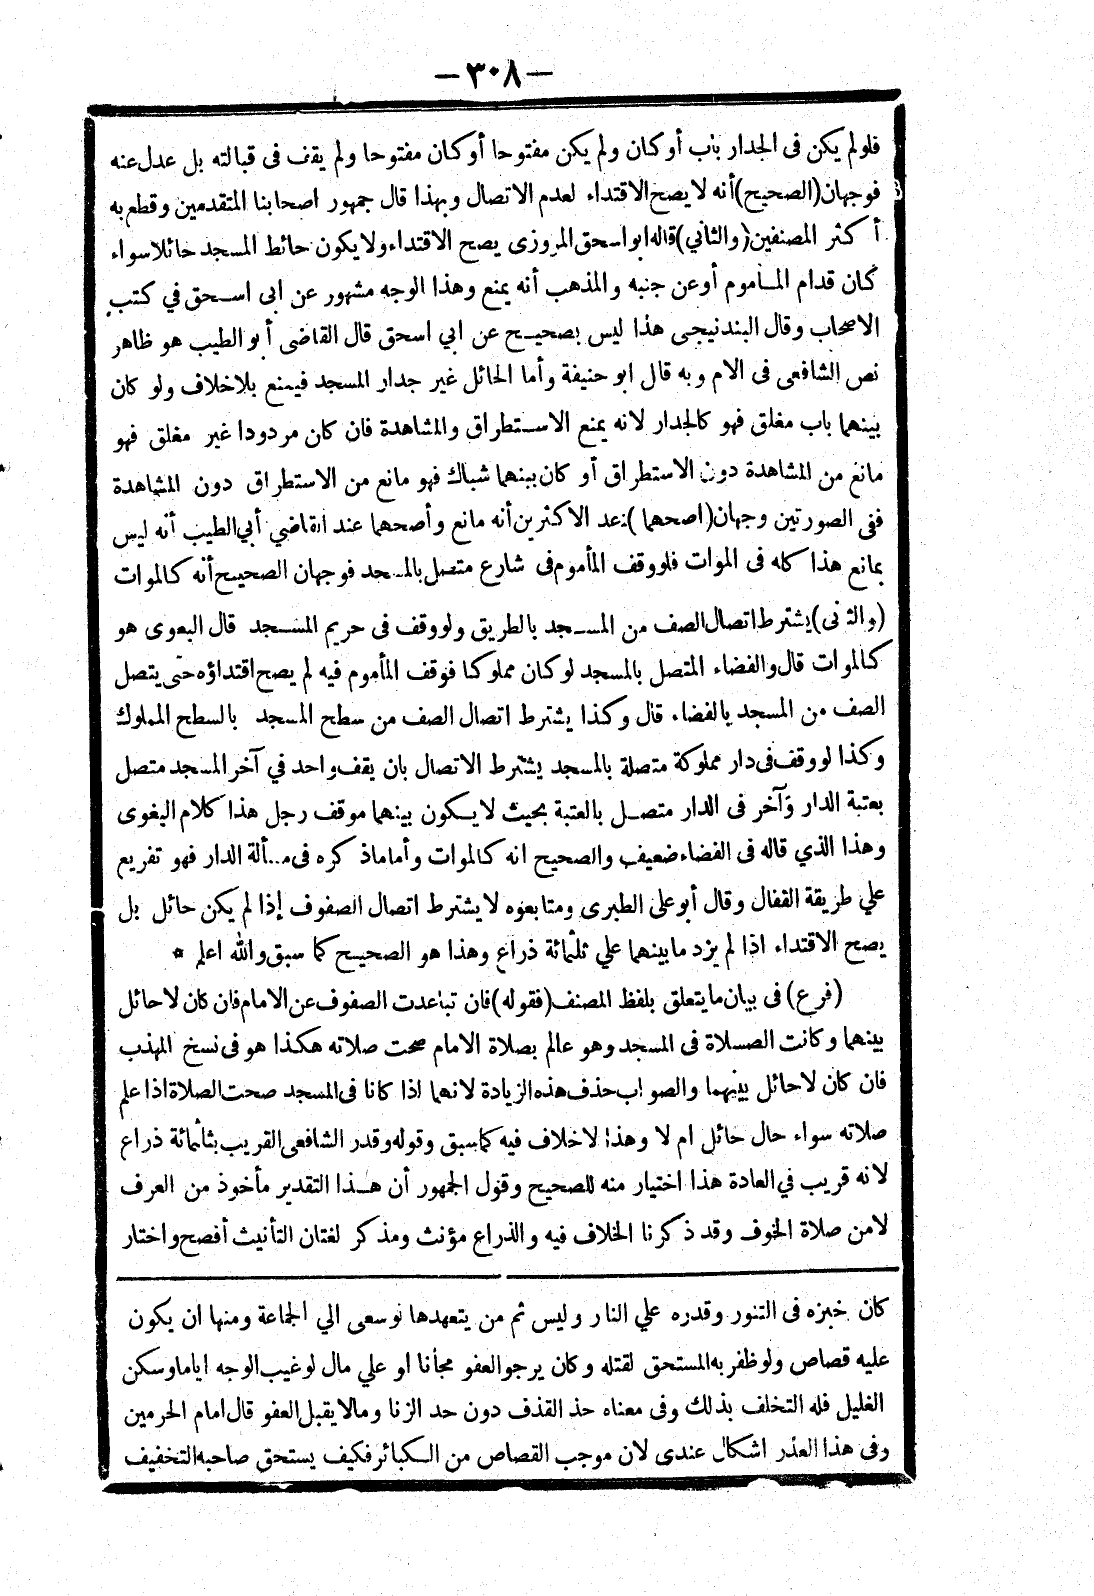 -٣٠٨-
فلولم يكن فى الجدار باب أوكان ولم يكن مفتوحا أوكان مفتوحا ولم يقف فى قبالته بل عدل عنه
فوجهان (الصحيح) أنه لا يصح الاقتداء لعدم الاتصال وبهذا قال جمهور اصحابنا المتقدمين وقطع به
أكثر المصنفين (والثاني) قاله ابو اسحق المروزى يصح الاقتداء ولا يكون حائط المسجد حائلا سواء
كان قدام المـأموم أوعن جنبه والمذهب أنه يمنع وهذا الوجه مشهور عن ابى اسـحق في كتب
الاصحاب وقال البندنيجى هذا ليس بصحيـح عن ابي اسحق قال القاضى أبو الطيب هو ظاهر
نص الشافعى فى الام وبه قال ابو حنيفة وأما الحائل غير جدار المسجد فيمنع بلاخلاف ولو كان
بينهما باب مغلق فهو كالجدار لانه يمنع الاسـتطراق والمشاهدة فان كان مردودا غير مغلق فهو
مانع من المشاهدة دون الاستطراق أو كان بينهما شباك فهو مانع من الاستطراق دون المشاهدة
ففى الصورتين وجهان (اصحهما) عند الاكثرين أنه مانع وأصحهما عند القاضي أبي الطيب أنه ليس
بمانع هذا كله فى الموات فلووقف المأموم فى شارع متصل بالمسجد فوجهان الصحيح أنه كالموات
(والثانى) يشترط اتصال الصف من المسـجد بالطريق ولووقف فى حريم المسجد قال البغوى هو
كالموات قال والفضاء المتصل بالمسجد لو كان مملوكا فوقف المأموم فيه لم يصح اقتداؤه حتى يتصل
الصف من المسجد بالفضاء. قال وكذا يشترط اتصال الصف من سطح المسجد بالسطح المملوك
وكذا لووقف فى دار مملوكة متصلة بالمسجد يشترط الاتصال بان يقف واحد في آخر المسجد متصل
بعتبة الدار وآخر فى الدار متصـل بالعتبة بحيث لا يـكون بينهما موقف رجل هذا كلام البغوى
وهذا الذي قاله فى الفضاء ضعيف والصحيح انه كالموات وأما ماذ كره فى مسألة الدار فهو تفريع
علي طريقة القفال وقال أبوعلى الطبرى ومتابعوه لا يشترط اتصال الصفوف إذا لم يكن حائل بل
يصح الاقتداء اذا لم يزد مابينهما علي ثلثمائة ذراع وهذا هو الصحيـح كما سبق والله اعلم *
(فرع) فى بيان مايتعلق بلفظ المصنف (فقوله) فان تباعدت الصفوف عن الامام فان كان لا حائل
بينهما وكانت الصـلاة فى المسجد وهو عالم بصلاة الامام صحت صلاته هكذا هو فى نسخ المهذب
فان كان لا حائل بينهما والصواب حذف هذه الزيادة لانهما اذا كانا فى المسجد صحت الصلاة اذا علم
صلاته سواء حال حائل ام لا وهذا لا خلاف فيه كما سبق وقوله وقدر الشافعى القريب بثلثمائة ذراع
لانه قريب في العادة هذا اختيار منه للصحيح وقول الجمهور أن هـذا التقدير مأخوذ من العرف
لامن صلاة الخوف وقد ذكرنا الخلاف فيه والذراع مؤنث ومذكر لغتان التأنيث أفصح واختار
كان خبزه فى التنور وقدره علي النار وليس ثم من يتعهدها لوسعى الي الجماعة ومنها ان يكون
عليه قصاص ولوظفر به المستحق لقتله وكان يرجو العفو مجانا او علي مال لو غيب الوجه اياما وسكن
الغليل فله التخلف بذلك وفى معناه حد القذف دون حد الزنا ومالا يقبل العفو قال امام الحرمين
وفى هذا العذر اشكال عندى لان موجب القصاص من الـكبائر فكيف يستحق صاحبه التخفيف